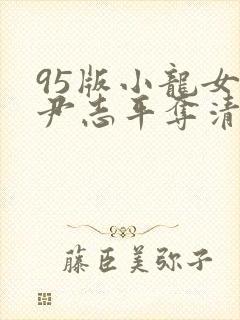 95版小龍女
尹志平奪清
藤臣美弥子